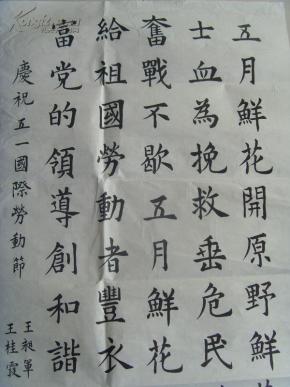 五月鮮花開原野鮮
士血為挽救垂危民
奮戰不歇五月鮮花
給祖國勞動者豐衣
富党的領導創和諧
慶祝五一國際勞動節
王昶軍
王桂霞